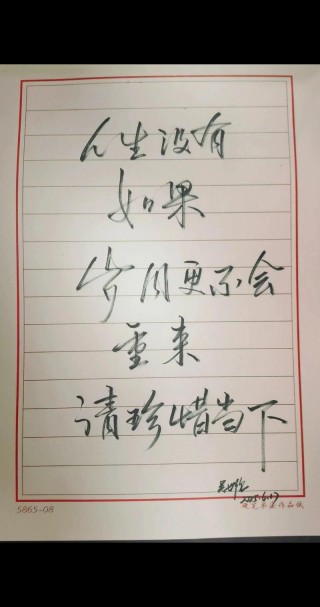 人生没有
如果
岁月更不会
重来
请珍惜当下
2025.6.17
硬笔书法作品纸
5865-08